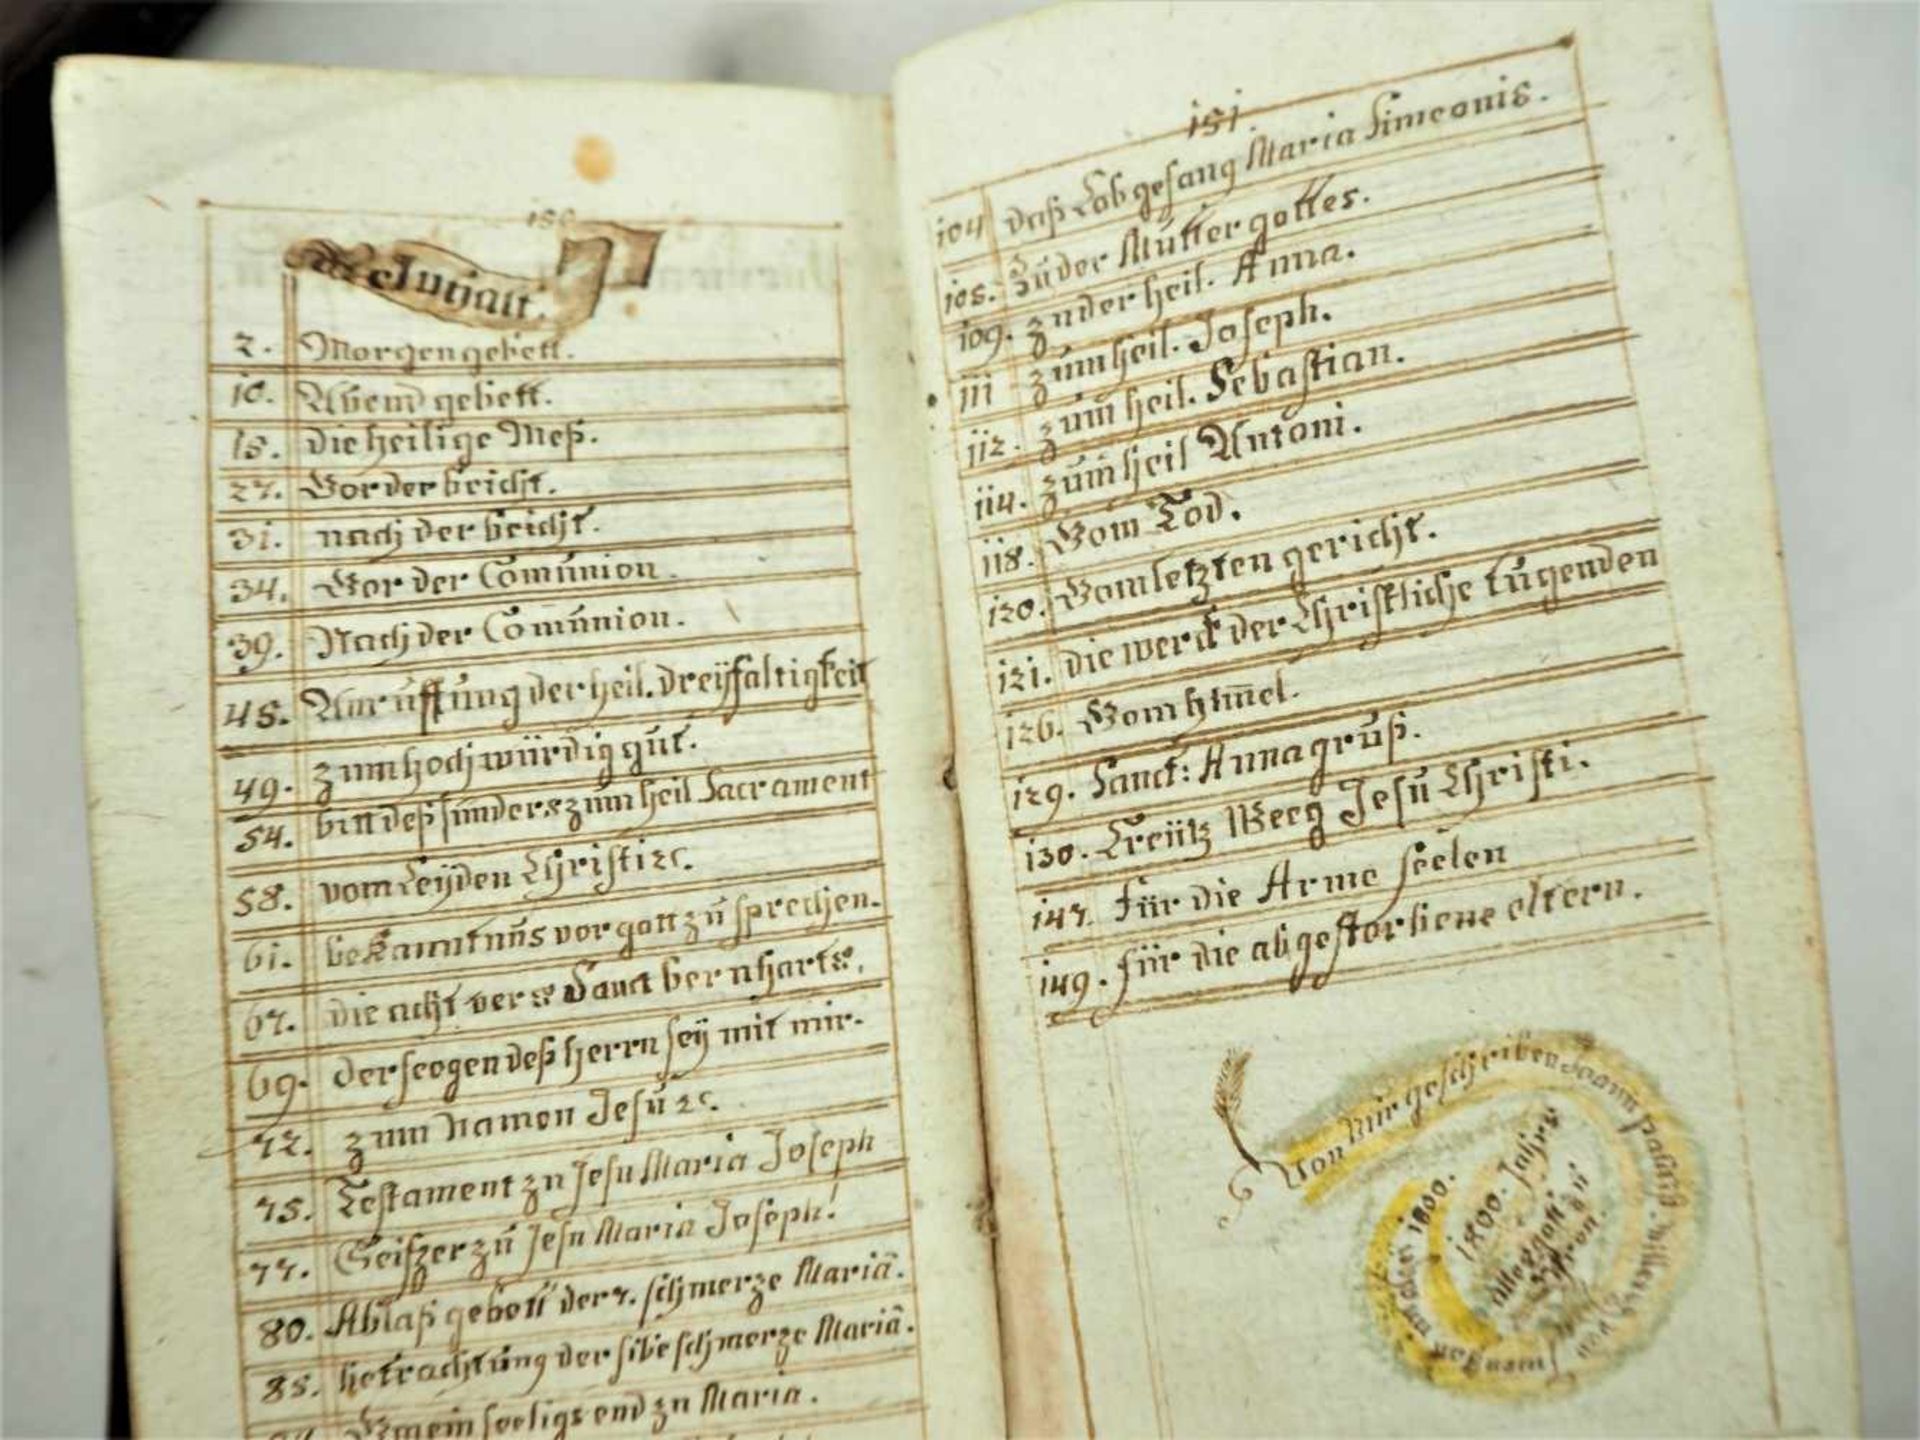 Inhalt.
2. Morgengebett.
10. Abend gebett.
15. die heilige Meß.
27. Vor der beicht.
31. nach der beicht.
34. Vor der Comūnion.
39. Nach der Comūnion.
45. Anrūffūng der heil. dreÿfaltigkeit
49. zum hochwürdig gūt.
54. bitt deß sünders zum heil Sacrament
58. vom Leÿden Christi ꝛc.
61. bekanntnūs vor gott zū sprechen.
67. die acht vers Sanct bernharts.
69. der seegen deß herrn seÿ mit mir.
72. zum Namen Jesū ꝛc.
75. Testament zu Jesu Maria Joseph
77. Seifzer zū Jesu Maria Joseph!
80. Ablaß gebett der 7. schmerze Mariä.
85. betrachtūng der sibe schmerze Mariä.
zu Maria.
151.
104 daß Lobgesang Maria Simeonis.
105. Zū der Mūtter gottes.
109. zu der heil. Anna.
111 zūm heil. Joseph.
112. zūm heil. Sebastian.
114. zūm heil Antoni.
118. Vom Tod.
120. Vom letzten gericht.
121. die werck der Christliche tūgenden
126. Vom him̄el.
129. Sanct: Anna grūß.
130. Creütz Weeg Jesū Christi.
147. Für die Arme seelen
149. für die abgestorbene eltern.
Von mir geschriben Joann
von
1800.
1800. Jahrs